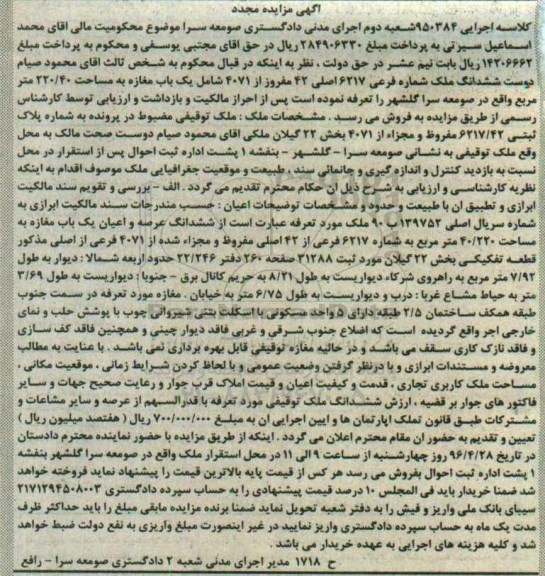 آگهی مزایده مجدد
کلاسه اجرایی ۹۵۰۳۸۴شعبه دوم اجرای مدنی دادگستری صومعه سرا موضوع محکومیت مالی اقای محمد
اسماعیل سیرتی به پرداخت مبلغ ۲۸۴۹۰۶۳۳۰ ریال در حق اقای مجتبی یوسفی و محکوم به پرداخت مبلغ
۱۴۲۰۶۶۶۲ ریال بابت نیم عشر در حق دولت ، نظر به اینکه در قبال محکوم به شخص ثالث اقای محمود صیام
دوست ششدانگ ملک شماره فرعی ۶۲۱۷ اصلی ۴۲ مفروز از ۴۰۷۱ شامل یک باب مغازه به مساحت ۲۲۰/۴۰ متر
مربع واقع در صومعه سرا گلشهر را تعرفه نموده است پس از احراز مالکیت و بازداشت و ارزیابی توسط کارشناس
رسمی از طریق مزایده به فروش می رسد . مشخصات ملک : ملک توقیفی مضبوط در پرونده به شماره پلاک
ثبتی ۶۲۱۷/۴۲ مفروظ و مجزاء از ۴۰۷۱ بخش ۲۲ گیلان ملکی اقای محمود صیام دوست صحت مالک به محل
وقع ملک توقیفی به نشانی صومعه سرا - گلشهر - بنفشه ۱ پشت اداره ثبت احوال پس از استقرار در محل
نسبت به بازدید کنترل و اندازه گیری و جانمائی سند ، طبیعت و موقعیت جغرافیایی ملک موصوف اقدام به اینکه
نظریه کارشناسی و ارزیابی به شرح ذیل ان حکام محترم تقدیم می گردد . الف - بررسی و تقویم سند مالکیت
ابرازی و تطبیق ان با طبیعت و حدود و مشخصات توضیحات اعیان : حسب مندرجات سند مالکیت ابرازی به
شماره سریال اصلی ۱۳۹۷۵۲ب ۹۰ ملک مورد تعرفه عبارت است از ششدانگ عرصه و اعیان یک باب مغازه به
مساحت ۴۰/۲۲۰ متر مربع به شماره ۶۲۱۷ فرعی از ۴۲ اصلی مفروظ و مجزاء شده از ۴۰۷۱ فرعی از اصلی مذکور
قطعه تفکیکی بخش ۲۲ گیلان مورد ثبت ۳۱۲۸۸ صفحه ۲۶۰ دفتر ۲۲/۲۴۶ حدود اربعه شمالا : دیوار به طول
۷/۹۲ متر مربع به راهروی شرکاء دیواریست به طول ۸/۲۱ به حریم کانال برق - جنوبا : دیواریست به طول ۳/۶۹
متر به حیاط مشاع غربا : درب و دیواریست به طول ۶/۷۵ متر به خیابان . مغازه مورد تعرفه در سمت جنوب
طبقه همکف ساختمان ۲/۵ طبقه دارای ۵ واحد مسکونی با اسکلت بتنی شیروانی چوب با پوشش حلب و نمای
خارجی اجر واقع گردیده است که اضلاع جنوب شرقی و غربی فاقد دیوار چینی و همچنین فاقد کف سازی
و فاقد نازک کاری سقف می باشد و در حالیه مغازه توقیفی قابل بهره برداری نمی باشد . با عنایت به مطالب
معروضه و مستندات ابرازی و با درنظر گرفتن وضعیت عمومی و با لحاظ کردن شرایط زمانی ، موقعیت مکانی ،
مساحت ملک کاربری تجاری ، قدمت و کیفیت اعیان و قیمت املاک قرب جوار و رعایت صحیح جهات و سایر
فاکتور های جوار بر قضیه ، ارزش ششدانگ ملک توقیفی مورد تعرفه با قدرالسهم از عرصه و سایر مشاعات و
مشترکات طبق قانون تملک اپارتمان ها و ایین اجرایی ان به مبلغ ۷۰۰/۰۰۰/۰۰۰ ریال ( هفتصد میلیون ریال )
تعیین و تقدیم به حضور ان مقام محترم اعلان می گردد . اینکه از طریق مزایده با حضور نماینده محترم دادستان
در تاریخ ۹۶/۴/۲۸ روز چهارشنبه از ساعت ۹ الی ۱۱ در محل استقرار ملک واقع در صومعه سرا گلشهر بنفشه
۱ پشت اداره ثبت احوال بفروش می رسد هر کس از قیمت پایه بالاترین قیمت را پیشنهاد نماید فروخته خواهد
شد ضمنا خریدار باید فی المجلس ۱۰ درصد قیمت پیشنهادی را به حساب سپرده دادگستری ۲۱۷۱۲۹۴۵۰۸۰۰۳
سیبای بانک ملی واریز و فیش را به دفتر شعبه تحویل نماید ضمنا برنده مزایده مابقی مبلغ را باید حداکثر ظرف
مدت یک ماه به حساب سپرده دادگستری واریز نمایید در غیر اینصورت مبلغ واریزی به نفع دولت ضبط خواهد
شد و کلیه هزینه های اجرایی به عهده خریدار می باشد .
ح ۱۷۱۸ مدیر اجرای مدنی شعبه ۲ دادگستری صومعه سرا - رافع